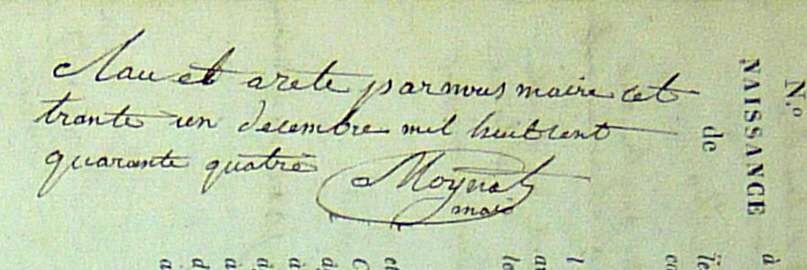 Clau et arete par nous maire cet
trante un decembre mil huit cent
quarante quatre Moynat
maire
N.º
NAISSANCE
de